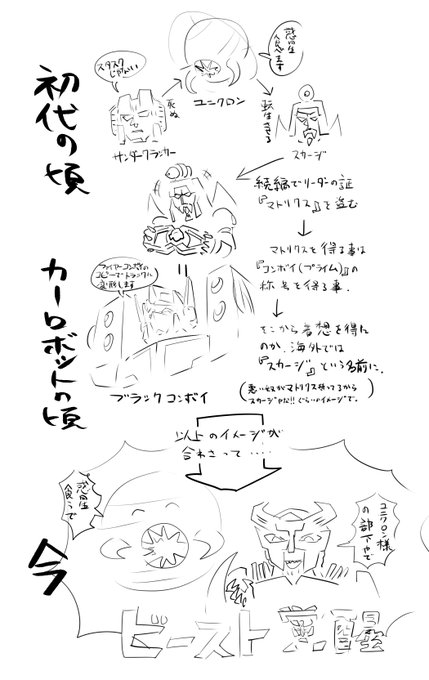 初代の頃
スタスクじゃない
サンダークラッカー
死ぬ
惑星食べます
ユニクロン
転生させる
スカージ
続編でリーダーの証
『マトリクス』を盗む
マトリクスを得る事は
『コンボイ(プライム)』の
称号を得る事.
そこから着想を得た
のか、海外では
『スカージ』という名前に.
(悪い奴がマトリクス持ってるから
スカージやな!!ぐらいのイメージで.)
カーロボットの頃
ファイヤーコンボイの
コピーで トラックに
変形します
ブラックコンボイ
以上のイメージが
合わさって‥‥
今
惑星
食うで
ユニクロン様
の部下やで
ビースト覚醒